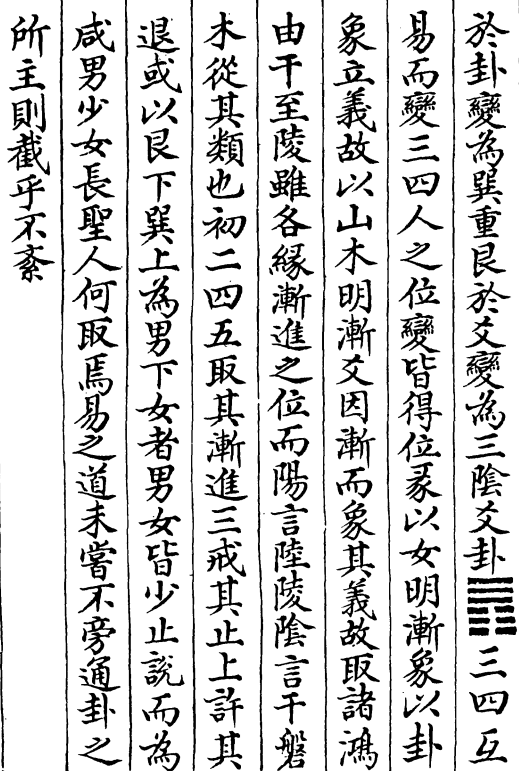 於卦變為巽重艮於爻變為三陰爻卦䷴三四互
易而變三四人之位變皆得位彖以女明漸象以卦
象立義故以山木明漸爻因漸而象其義故取諸鴻
由干至陵雖各緣漸進之位而陽言陸陵陰言干磐
木從其類也初二四五取其漸進三戒其止上許其
退或以艮下巽上為男下女者男女皆少止說而為
咸男少女長聖人何取焉易之道未嘗不旁通卦之
所主則截乎不紊